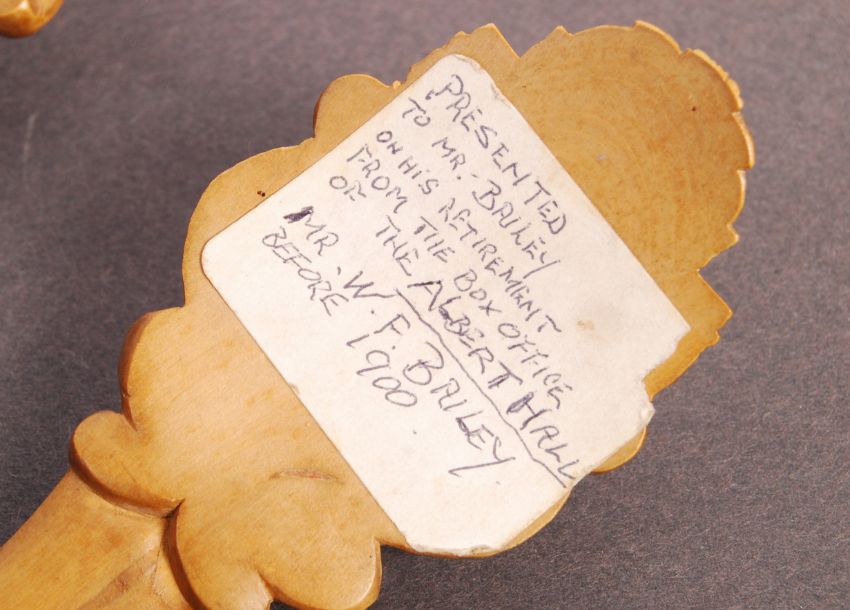 PRESENTED
TO MR. BRILEY
ON HIS RETIREMENT
FROM THE BOX OFFICE
OF THE ALBERT HALL
MR. W. F. BRILEY.
BEFORE 1900.